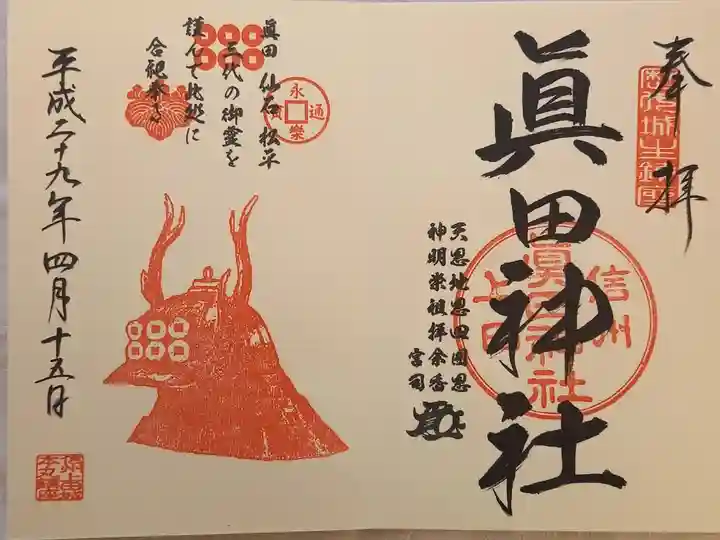 奉拝
眞田神社
信州
上田
眞田神社
天恩地恩四国恩
神明崇祖拝余香
宮司
眞田 仙石 松平
三代の御霊を
謹んで此処に
合祀奉る
永樂通寳
平成二十九年四月十五日